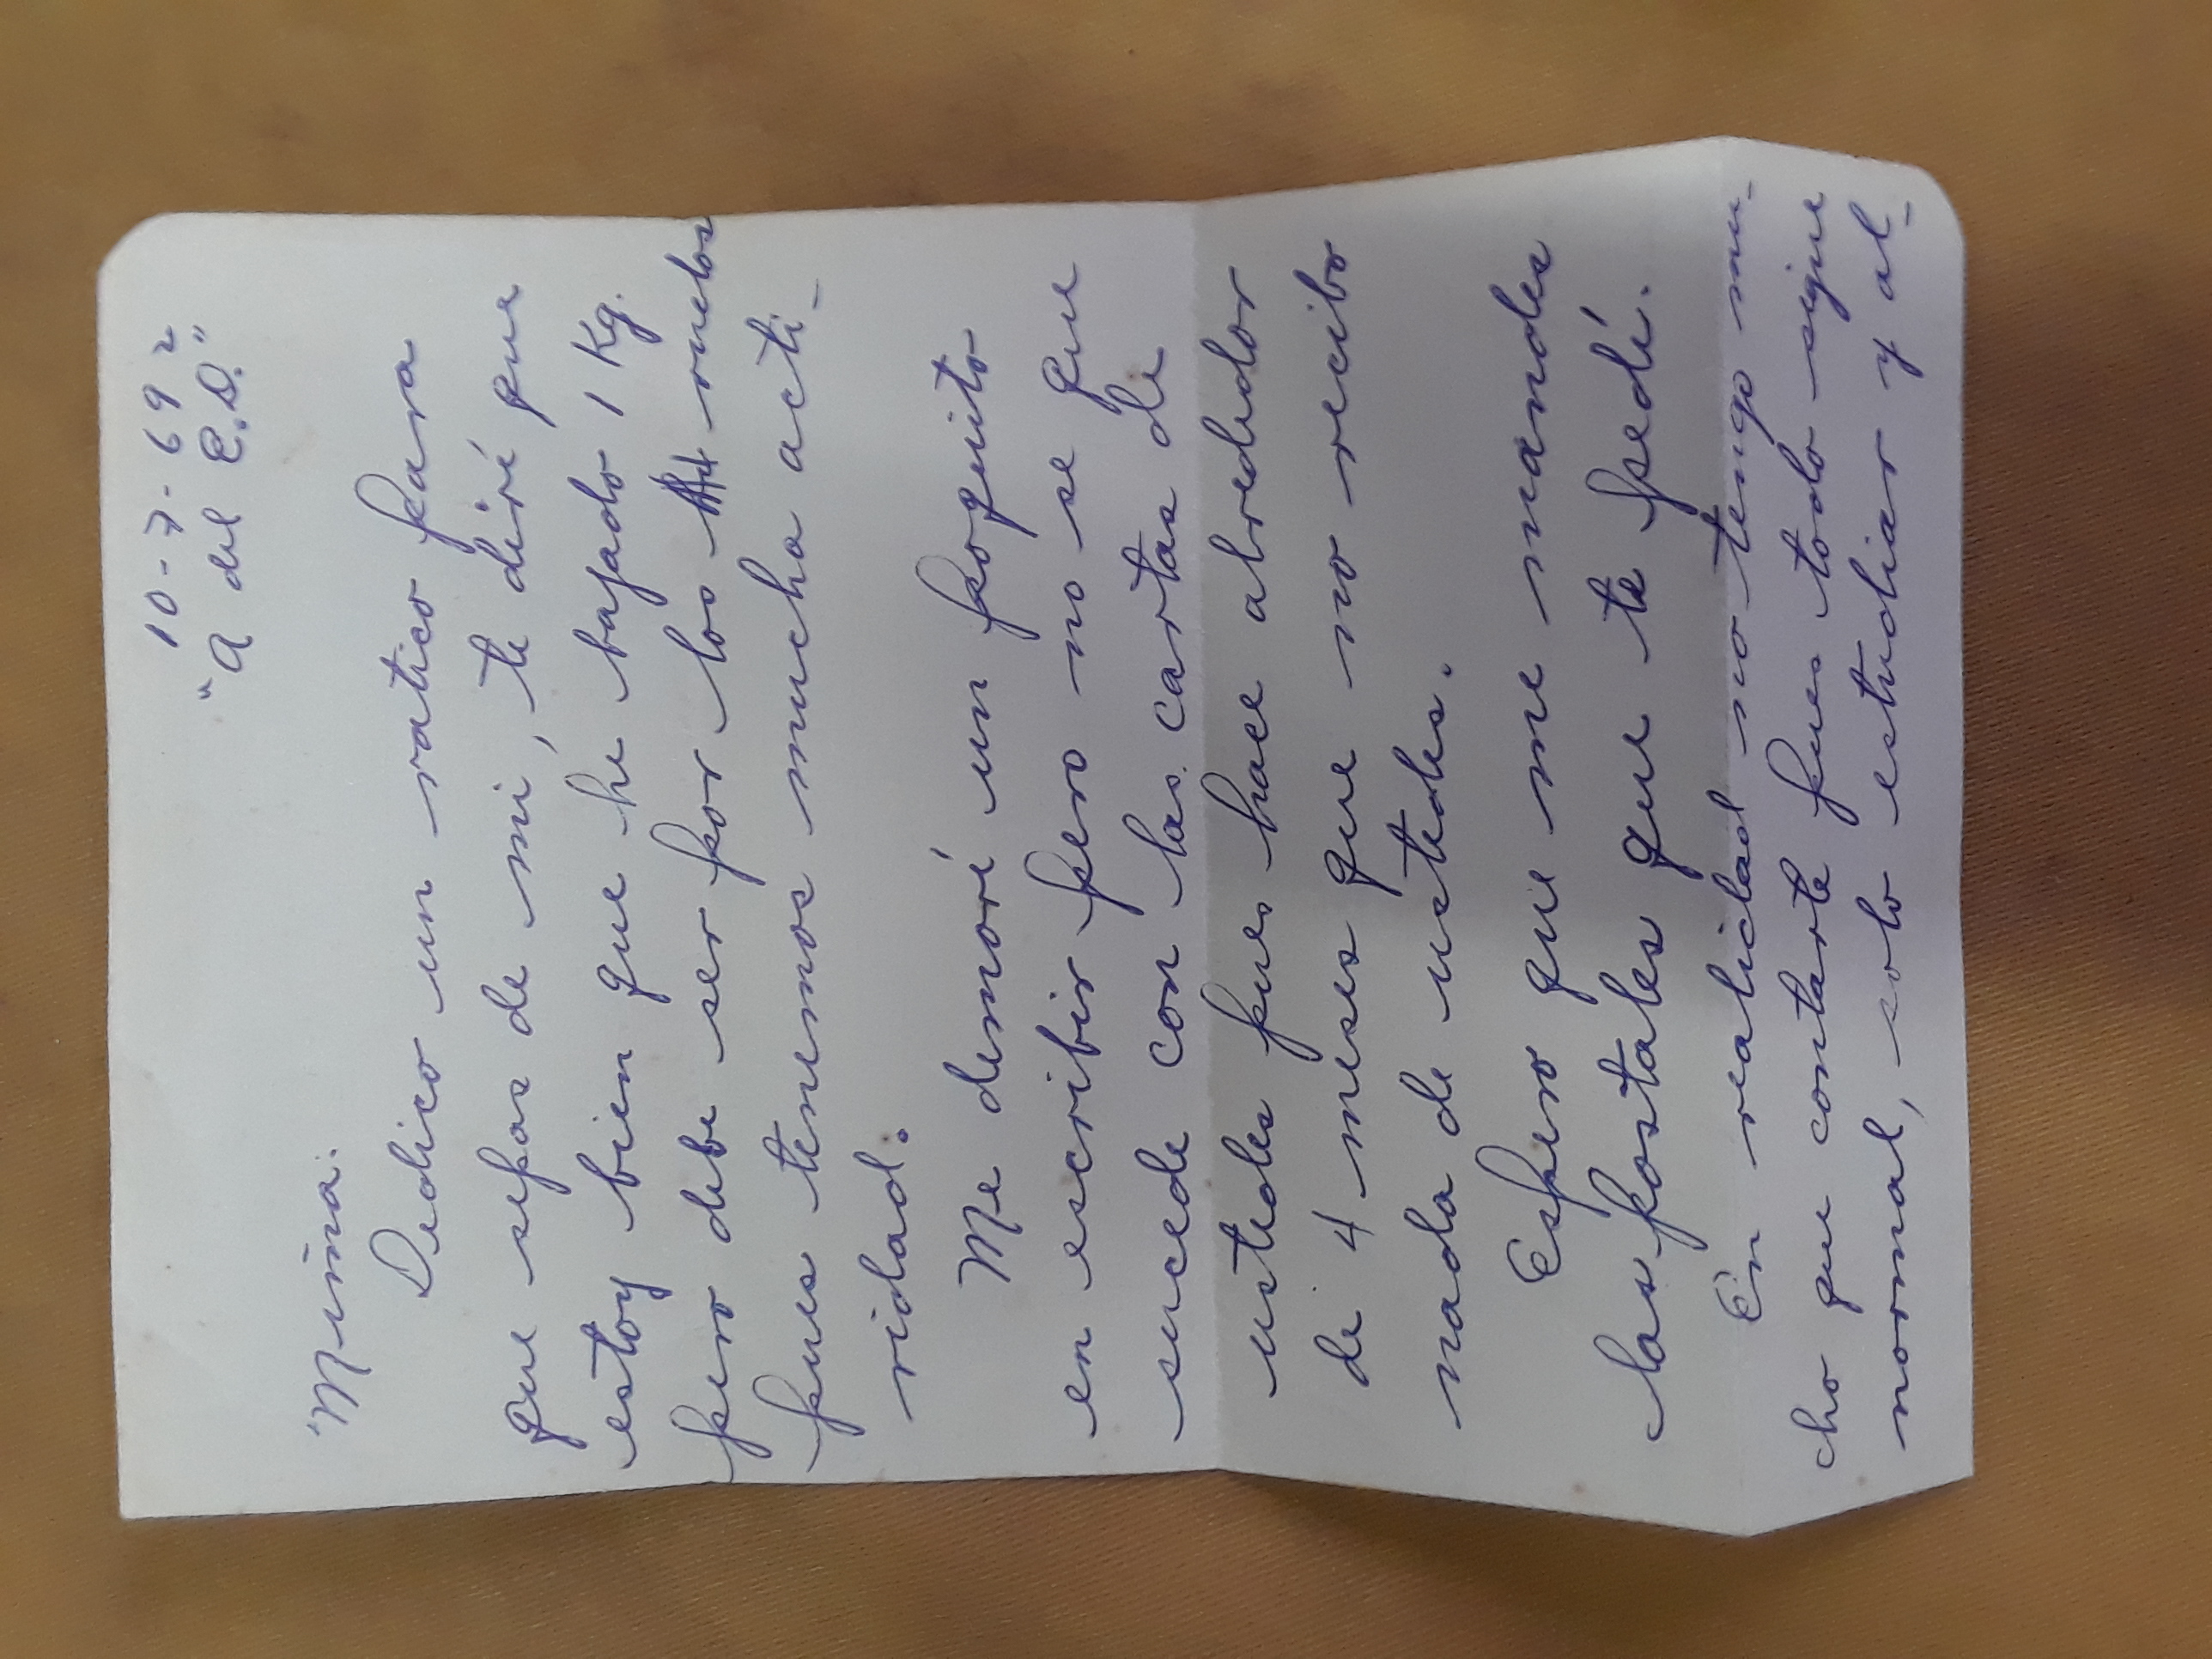 10-7-69
"A del E.D."
Mima:
Dedico un ratico para
que sepas de mi, te diré que
estoy bien que he bajado 1 Kg.
pero debe ser por los vuelos
pues tenemos mucha acti-
vidad.
Me demoré un poquito
en escribir pero no se que
sucede con las cartas de
ustedes pues hace alrededor
de 4 meses que no recibo
nada de ustedes.
Espero que me mandes
las postales que te pedí.
En realidad no tengo mu-
cho que contarte pues todo sigue
normal, solo estudiar y al-